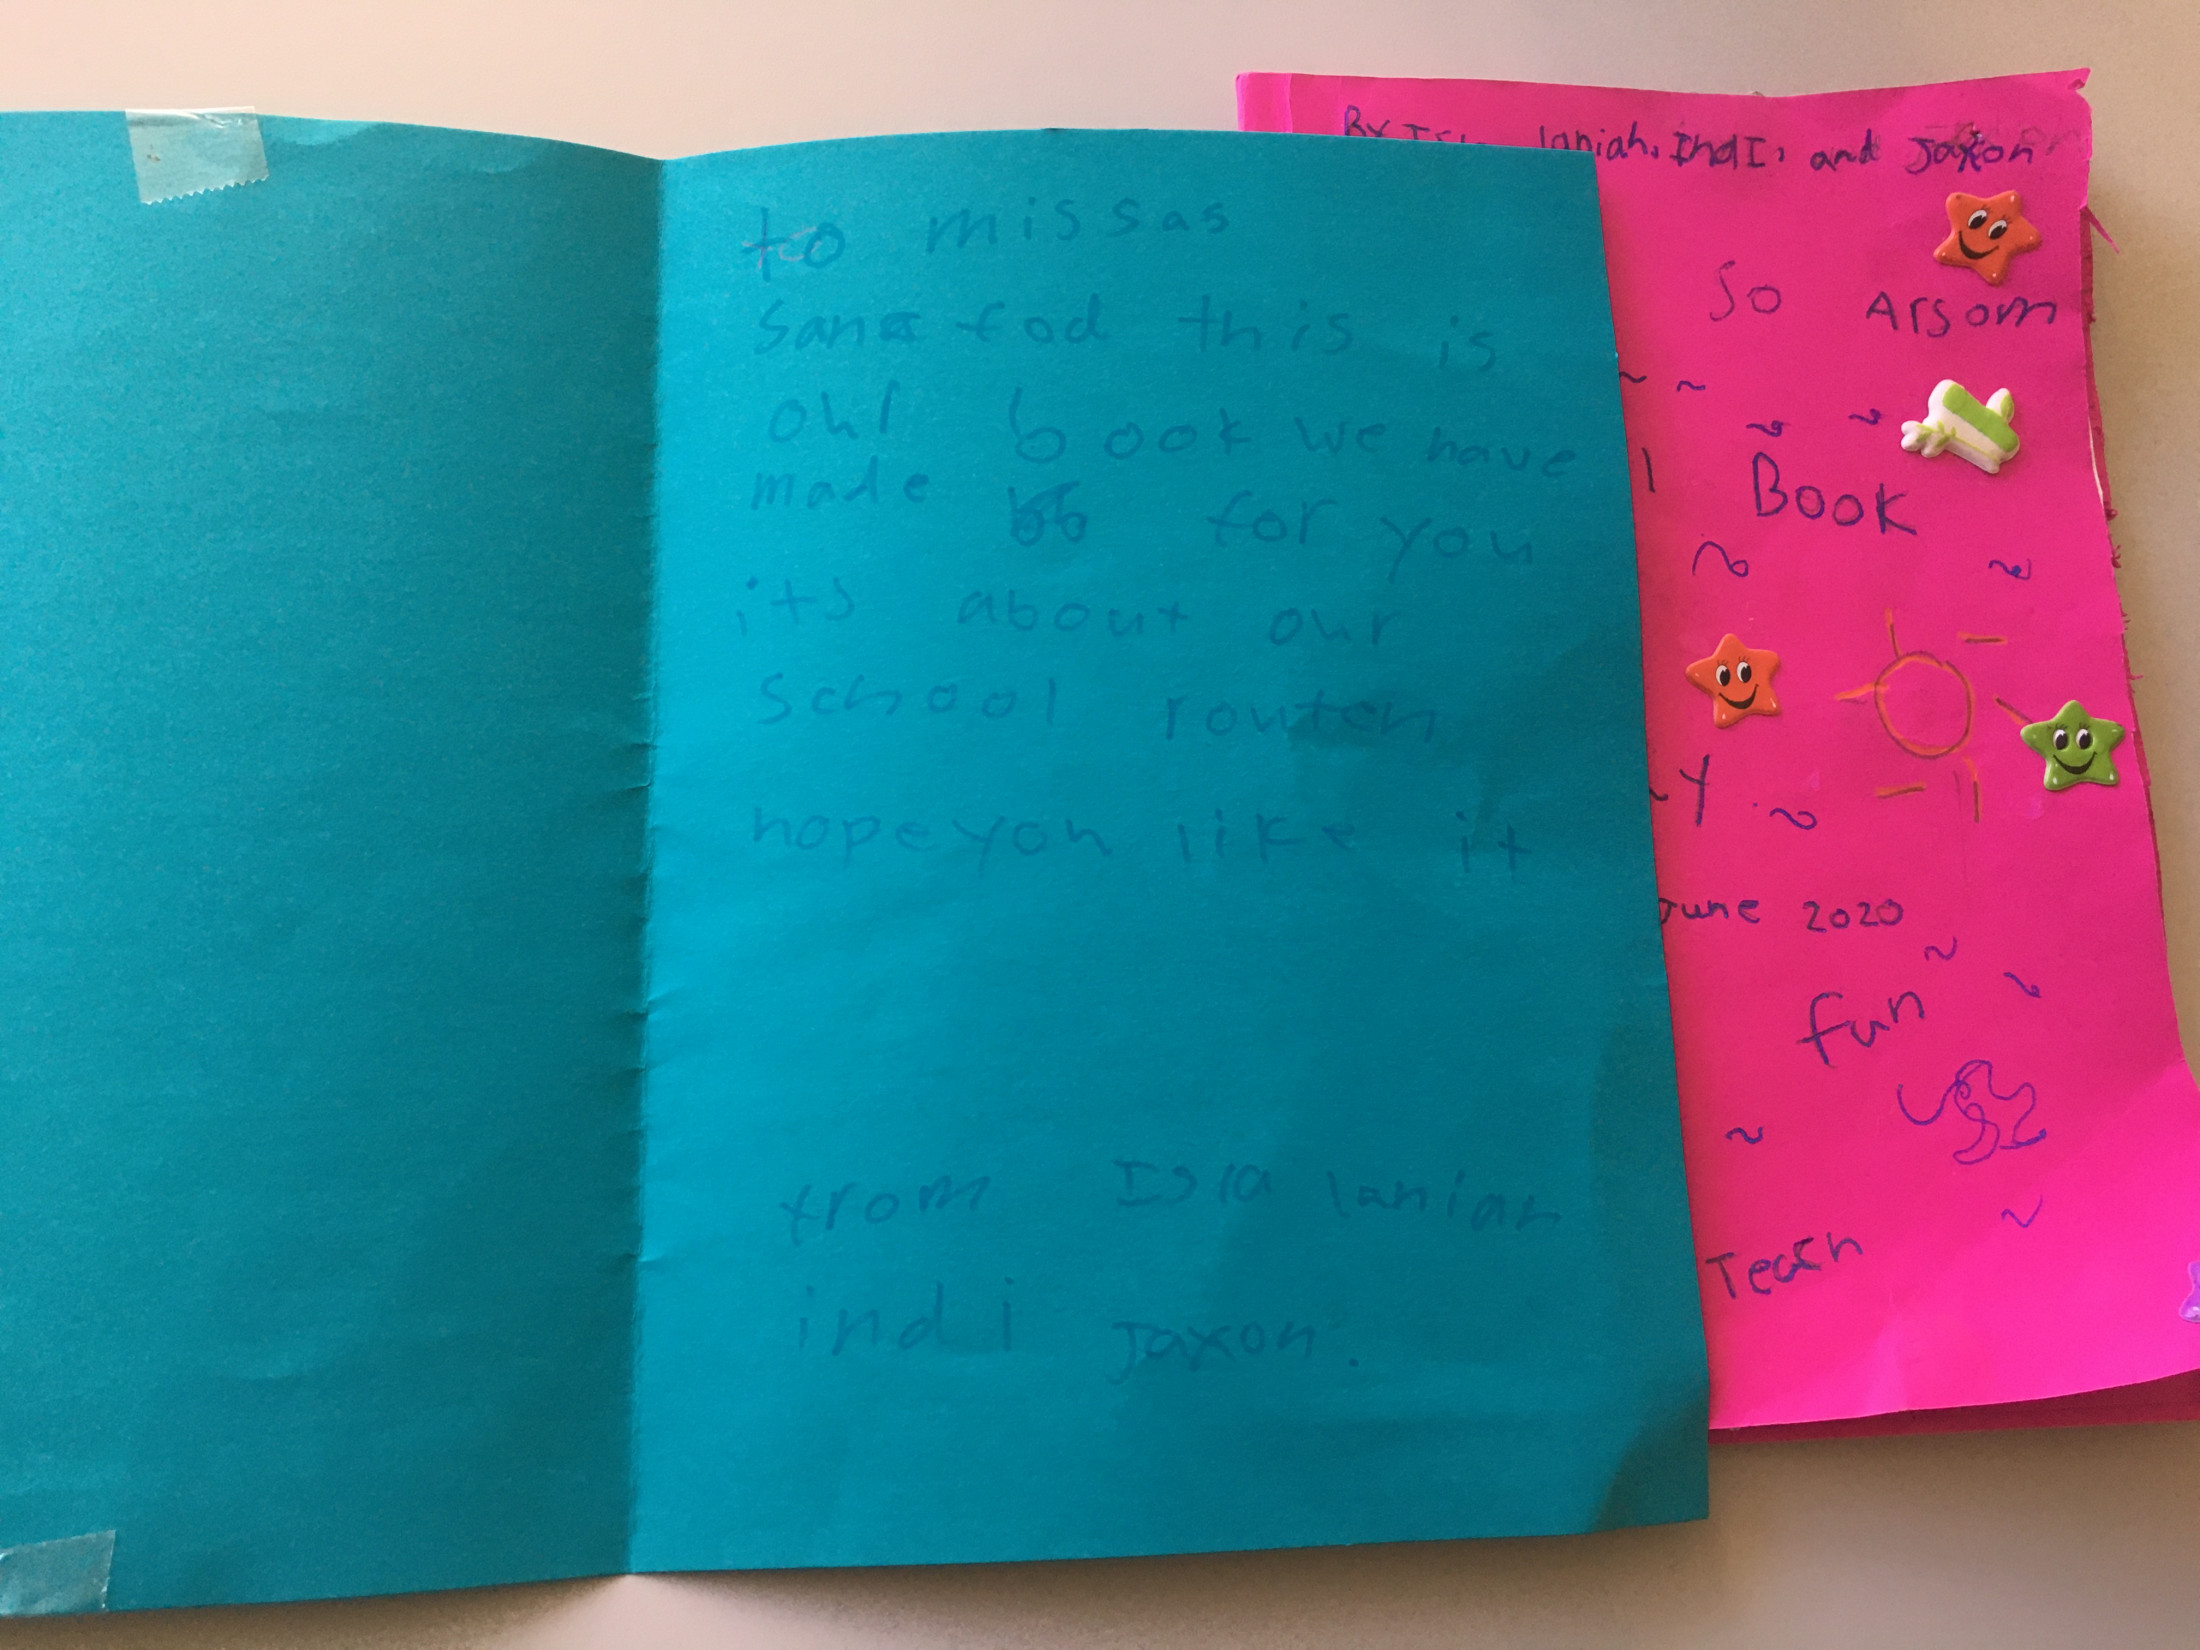 to missas
sana fod this is
our book we have
made for you
its about our
school routen
hope you like it
from Isla laniah
indi Jaxon.
By Isla laniah, IndI, and Jaxon
So Arsom
Book
y
June 2020
fun
Teach